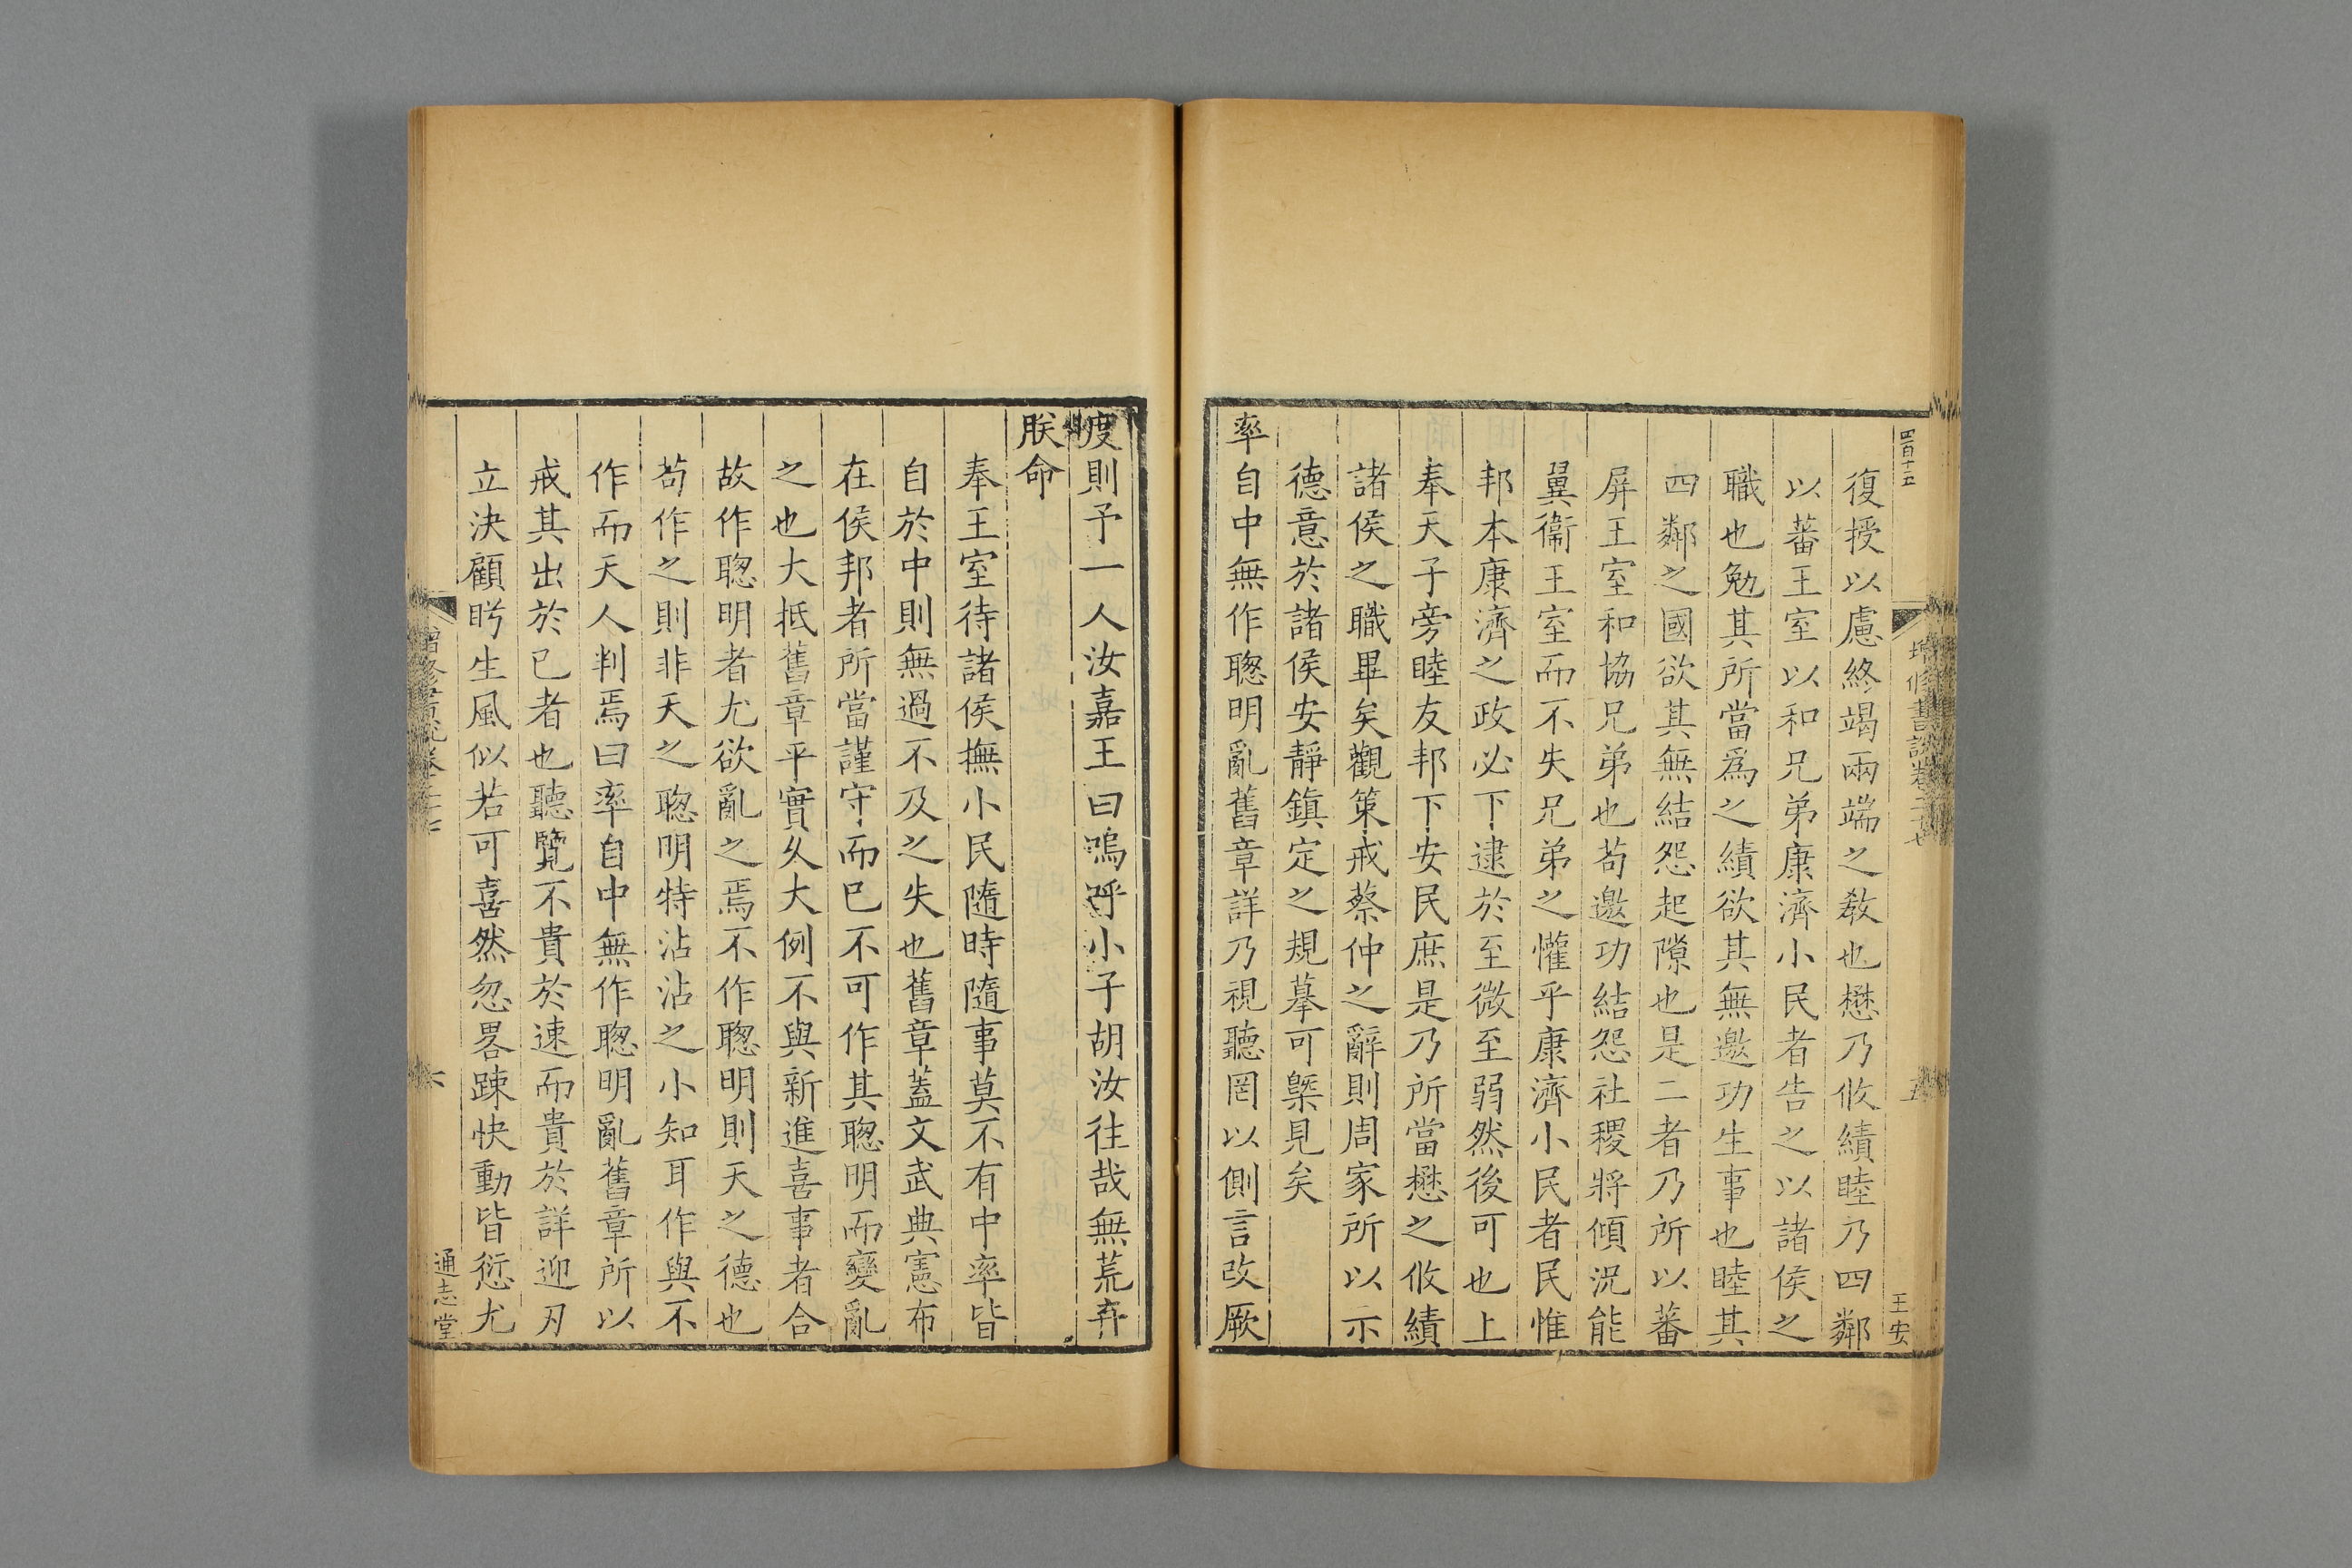 四百十五
王安
復授以慮終竭兩端之敎也懋乃攸績睦乃四鄰
以蕃王室以和兄弟康濟小民者告之以諸侯之
職也勉其所當爲之績欲其無邀功生事也睦其
四鄰之國欲其無結怨起隙也是二者乃所以蕃
屏王室和協兄弟也苟邀功結怨社稷將傾況能
翼衞王室而不失兄弟之懽乎康濟小民者民惟
邦本康濟之政必下逮於至微至弱然後可也上
奉天子旁睦友邦下安民庶是乃所當懋之攸績
諸侯之職畢矣觀策戒蔡仲之辭則周家所以示
德意於諸侯安靜鎮定之規摹可槩見矣
率自中無作聰明亂舊章詳乃視聽罔以側言改厥
度則予一人汝嘉王曰嗚呼小子胡汝往哉無荒弃
朕命
奉王室待諸侯撫小民隨時隨事莫不有中率皆
自於中則無過不及之失也舊章蓋文武典憲布
在侯邦者所當謹守而已不可作其聰明而變亂
之也大抵舊章平實久大例不與新進喜事者合
故作聰明者尤欲亂之焉不作聰明則天之德也
苟作之則非天之聰明特沾沾之小知耳作與不
作而天人判焉曰率自中無作聰明亂舊章所以
戒其出於已者也聽覽不貴於速而貴於詳迎刃
立決顧眄生風似若可喜然忽畧踈快動皆愆尤
增修書說卷二十七
六
通志堂